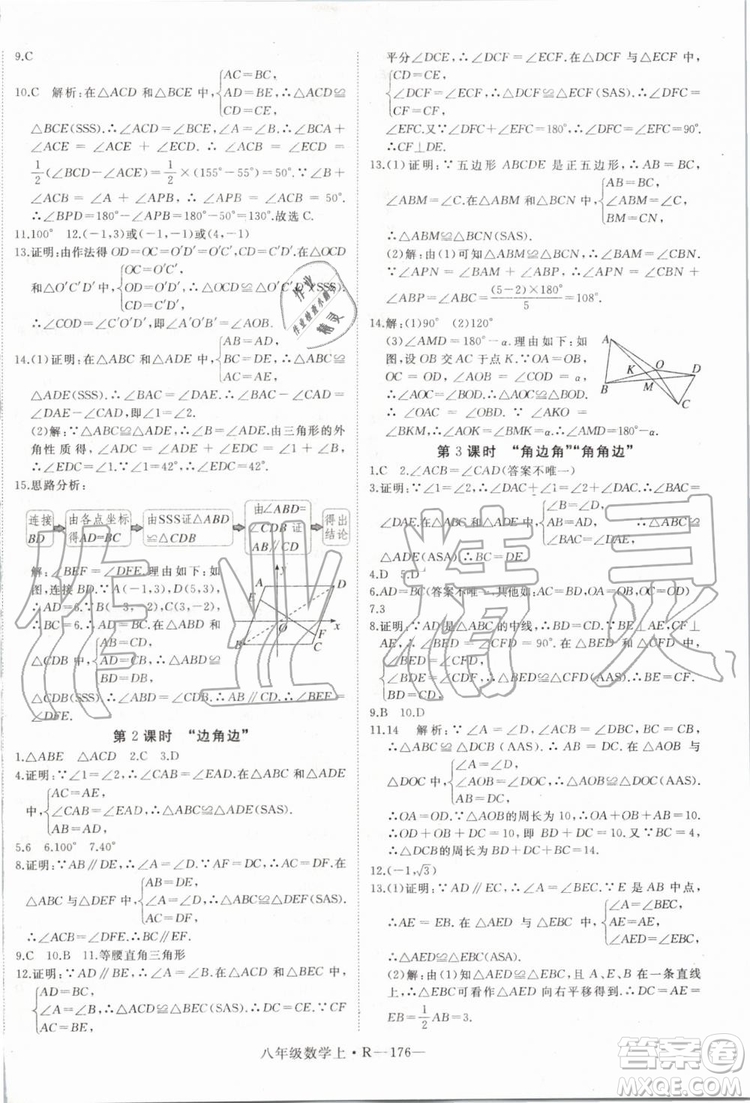 9.C
10.C 解析:在△ACD 和△BCE 中,{AC=BC, AD=BE, CD=CE, ∴△ACD≌
△BCE(SSS).∴∠ACD=∠BCE,∠A=∠B.∴∠BCA+
∠ACE=∠ACE+∠ECD.∴∠ACB=∠ECD=
1/2(∠BCD-∠ACE)=1/2×(155°-55°)=50°.∵∠B+
∠ACB=∠A+∠APB,∴∠APB=∠ACB=50°.
∴∠BPD=180°-∠APB=180°-50°=130°.故选C.
11.100° 12.(-1,3)或(-1,-1)或(4,-1)
13.证明:由作法得 OD=OC=O′D′=O′C′.在△OCD
和△O′C′D′中,{OC=O′C′, OD=O′D′, CD=C′D′, ∴△OCD≌△O′C′D′(SSS).
∴∠COD=∠C′O′D′,即∠A′O′B′=∠AOB.
14.(1)证明:在△ABC 和△ADE 中,{AB=AD, AC=AE, BC=DE, ∴△ABC≌
△ADE(SSS).∴∠BAC=∠DAE.∴∠DAE-
∠CAD=∠BAC-∠CAD,即∠1=∠2.
(2)解:∵△ABC≌△ADE,∴∠E=∠C.由三角形的外
角性质得∠1+∠C=∠EDC+∠E.∴∠EDC=∠1.
∵∠1=42°,∴∠EDC=42°.
15.思路分析:
连接BD
由各点坐标得AD=BC
由SSS证△ABD≌△CDB
由∠ABD=∠CDB 证AB∥CD
得出结论
解:∠BEF=∠DFE.理由如下:如
图,连接BD.∵A(-1,3),D(5,3),
∴AD=6.∵B(-5,-3),C(1,-3),
∴BC=6.∴AD=BC.在△ABD
和△CDB 中,{AB=CD, AD=CB, BD=DB, ∴△ABD≌
△CDB(SSS).∴∠ABD=∠CDB.∴AB∥CD.∴∠BEF=
∠DFE.
y
A
D
E
O
x
F
B
C
第2课时 “边角边”
1.△ABE △ACD 2.C 3.D
4.证明:∵∠1=∠2,∴∠CAB=∠EAD.在△ABC和△ADE
中,{AC=AE, ∠CAB=∠EAD, AB=AD, ∴△ABC≌△ADE(SAS).
5.6 6.100° 7.40°
8.证明:∵AB∥DE,∴∠A=∠D.∵AF=DC,∴AC=DF.
在△ABC与△DEF中,{AB=DE, ∠A=∠D, AC=DF, ∴△ABC≌△DEF(SAS).
∴∠ACB=∠DFE.∴BC∥EF.
9.C 10.B 11.等腰直角三角形
12.证明:∵AD∥BE,∴∠A=∠B.在△ACD和△BEC中,
{AD=BC, ∠A=∠B, AC=BE, ∴△ACD≌△BEC(SAS).∴DC=CE.∵CF
平分∠DCE,∴∠DCF=∠ECF.在△DCF和△ECF中,
{CD=CE, ∠DCF=∠ECF, CF=CF, ∴△DCF≌△ECF(SAS).∴∠DFC=
∠EFC.又∵∠DFC+∠EFC=180°,∴∠DFC=90°.
∴CF⊥DE.
13.(1)证明:∵五边形 ABCDE 是正五边形,∴AB=BC,
∠ABM=∠C.在△ABM和△BCN中,{AB=BC, ∠ABM=∠C, BM=CN,
∴△ABM≌△BCN(SAS).
(2)解:由(1)可知△ABM≌△BCN,∴∠BAM=∠CBN.
∵∠APN=∠BAM+∠ABP,∴∠APN=∠CBN+
∠ABP=∠ABC=(5-2)×180°/5=108°.
14.解:(1)90° (2)120°
(3)∠AMD=180°-α.理由如下:如
图,设OB交AC于点K.∵∠AOB=
∠COD=α,∴∠AOC=∠BOD.可证得
△AOC≌△BOD.∴∠OAC=∠OBD.
∵∠AKO=∠BKM,∴∠AOK=∠BMK=α.
∴∠AMD=180°-α.
A
K
O
D
M
B
C
第3课时 “角边角”“角角边”
1.C 2.∠ACB=∠CAD(答案不唯一)
3.证明:∵∠1=∠2,∴∠1+∠BAE=∠2+∠BAE,即∠BAC
=∠DAE.在△BAC和△DAE中,{∠C=∠E, AC=AE, ∠BAC=∠DAE, ∴△BAC≌
△DAE(ASA).∴BC=DE.
4.D 5.D
6.AD=BC(答案不唯一,其他如:AC=DB,OA=OB,OD=OC)
7.3
8.证明:∵AD是△ABC的中线,∴BD=CD.∵BE⊥AD,CF⊥
AD,∴∠BED=∠CFD=90°.在△BED与△CFD中,
{∠BED=∠CFD, ∠BDE=∠CDF, BD=CD, ∴△BED≌△CFD(AAS).∴BE=CF.
9.B 10.D
11.14 解析:∵∠ABO+∠OBC=∠DCO+∠OCB,
∴∠ABC=∠DCB.∴∠ABO=∠DCO.在△AOB与
△DOC中,{∠ABO=∠DCO, ∠AOB=∠DOC, OA=OD, ∴△AOB≌△DOC(AAS).
∴OA=OD=4.∵△AOB的周长为10,∴△DOC的周长
为10.∴OD+DC+OC=10,即DC+OC=6.∴△DBC
的周长为OB+OD+DC+BC=14.
12.(-1,√3)
13.(1)证明:∵AD∥BC,∴∠ADE=∠BCE.∵E是AB中点,
∴AE=BE.在△AED与△BEC中,{∠ADE=∠BCE, ∠AED=∠BEC, AE=BE,
∴△AED≌△BEC(AAS).
(2)解:由(1)知△AED≌△BEC,且A,E,B在一条直线
上,∴DE=CE=1/2CD,AD=BC.∵CD平分∠BCF,
八年级数学上·R—176—
作业精灵
答案圈